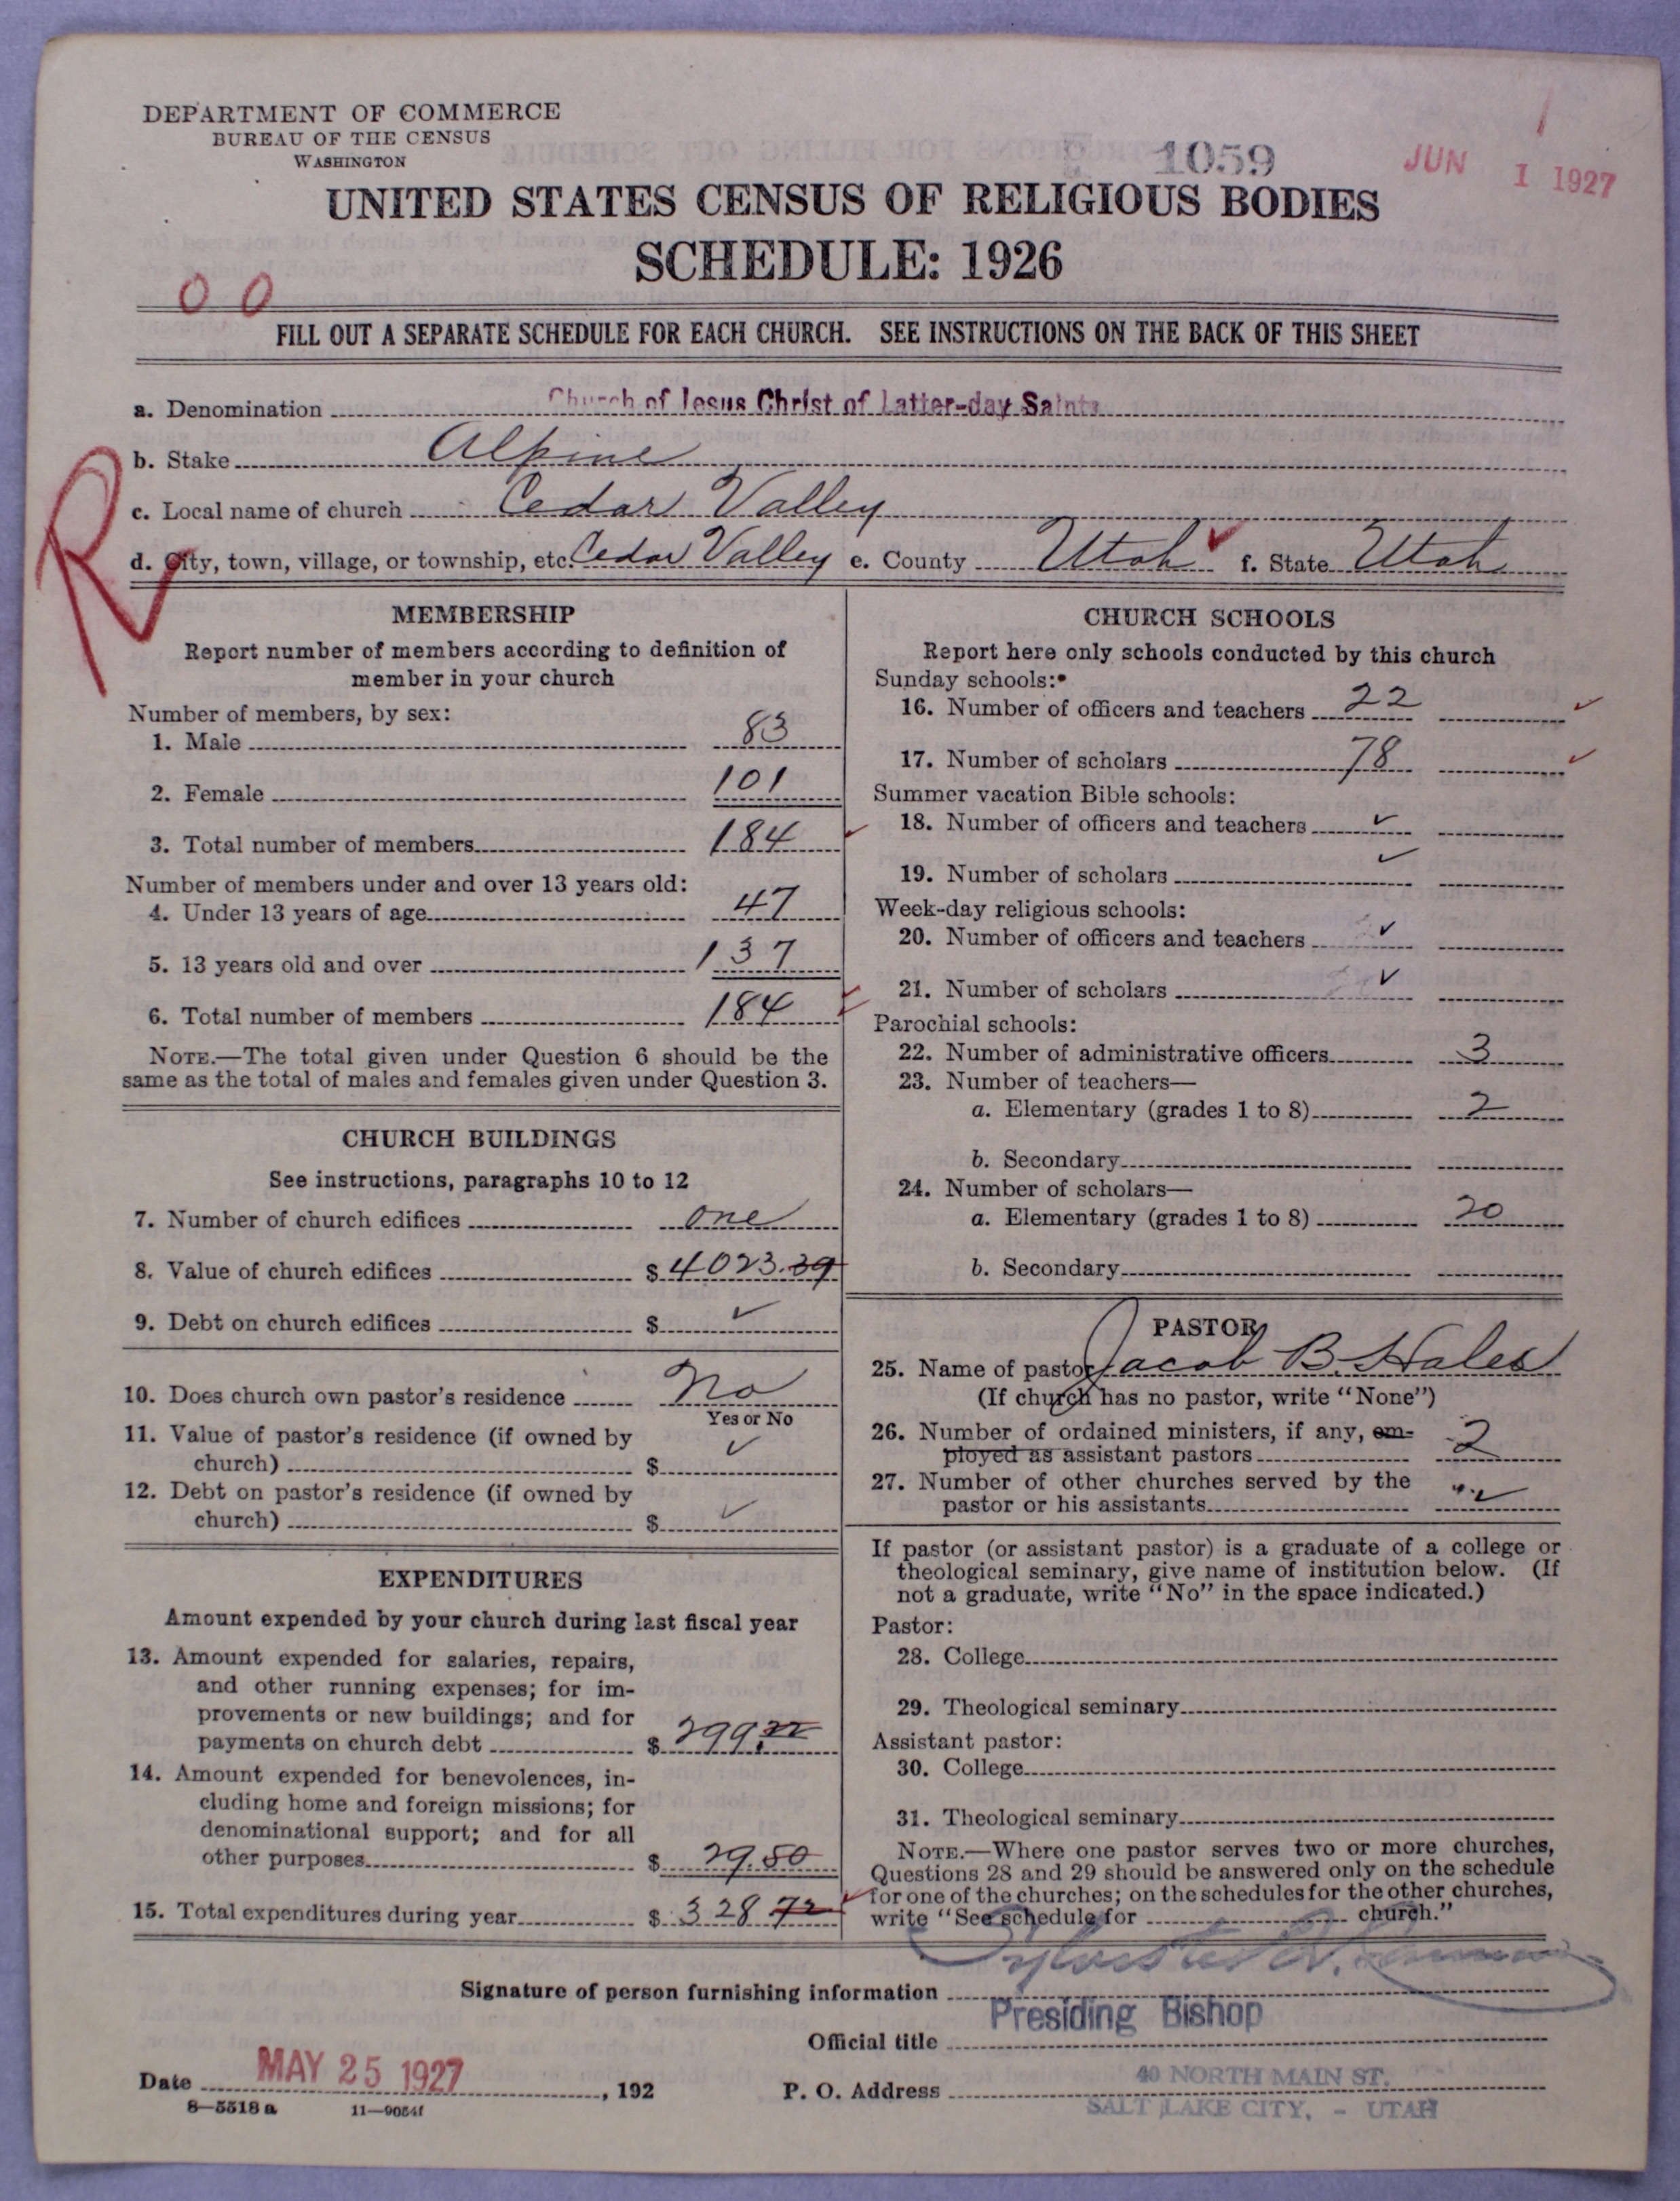 DEPARTMENT OF COMMERCE
BUREAU OF THE CENSUS
WASHINGTON
1059
JUN 1 1927
UNITED STATES CENSUS OF RELIGIOUS BODIES
SCHEDULE: 1926
00
FILL OUT A SEPARATE SCHEDULE FOR EACH CHURCH. SEE INSTRUCTIONS ON THE BACK OF THIS SHEET
a. Denomination Church of Jesus Christ of Latter-day Saints
b. Stake Alpine
c. Local name of church Cedar Valley
d. City, town, village, or township, etc. Cedar Valley e. County Utah f. State Utah
R
MEMBERSHIP
Report number of members according to definition of
member in your church
Number of members, by sex:
1. Male 83
2. Female 101
3. Total number of members 184
Number of members under and over 13 years old:
4. Under 13 years of age 47
5. 13 years old and over 137
6. Total number of members 184
NOTE.—The total given under Question 6 should be the
same as the total of males and females given under Question 3.
CHURCH BUILDINGS
See instructions, paragraphs 10 to 12
7. Number of church edifices one
8. Value of church edifices $ 4023.39
9. Debt on church edifices $ ✓
10. Does church own pastor's residence No
Yes or No
11. Value of pastor's residence (if owned by
church) $ ✓
12. Debt on pastor's residence (if owned by
church) $ ✓
EXPENDITURES
Amount expended by your church during last fiscal year
13. Amount expended for salaries, repairs,
and other running expenses; for im-
provements or new buildings; and for
payments on church debt $ 299.22
14. Amount expended for benevolences, in-
cluding home and foreign missions; for
denominational support; and for all
other purposes $ 29.50
15. Total expenditures during year $ 328 72
CHURCH SCHOOLS
Report here only schools conducted by this church
Sunday schools:
16. Number of officers and teachers 22
17. Number of scholars 78
Summer vacation Bible schools:
18. Number of officers and teachers ✓
19. Number of scholars ✓
Week-day religious schools:
20. Number of officers and teachers ✓
21. Number of scholars ✓
Parochial schools:
22. Number of administrative officers 3
23. Number of teachers—
a. Elementary (grades 1 to 8) 2
b. Secondary
24. Number of scholars—
a. Elementary (grades 1 to 8) 20
b. Secondary
PASTOR
25. Name of pastor Jacob B. Hales
(If church has no pastor, write "None")
26. Number of ordained ministers, if any, em-
ployed as assistant pastors 2
27. Number of other churches served by the
pastor or his assistants ✓
If pastor (or assistant pastor) is a graduate of a college or
theological seminary, give name of institution below. (If
not a graduate, write "No" in the space indicated.)
Pastor:
28. College
29. Theological seminary
Assistant pastor:
30. College
31. Theological seminary
NOTE.—Where one pastor serves two or more churches,
Questions 28 and 29 should be answered only on the schedule
for one of the churches; on the schedules for the other churches,
write "See schedule for church."
Signature of person furnishing information
Official title Presiding Bishop
Date MAY 25 1927, 192
P. O. Address 40 NORTH MAIN ST.
SALT LAKE CITY, - UTAH
8—5518 a 11—9054f